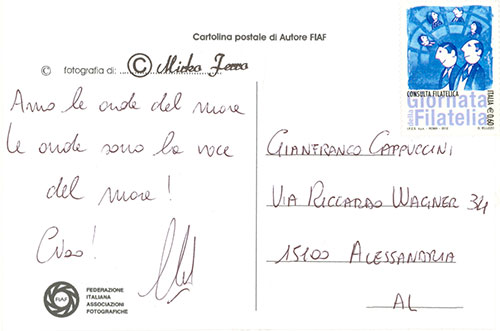 Cartolina postale di Autore FIAF
© fotografia di: © Mirko Ferro
Amo le onde del mare
Le onde sono la voce
del mare!
Ciao!
FIAF
FEDERAZIONE
ITALIANA
ASSOCIAZIONI
FOTOGRAFICHE
CONSULTA FILATELICA
Giornata
della
Filatelia
ITALIA € 0,60
GIANFRANCO CAPPUCCINI
VIA RICCARDO WAGNER 34
15100 ALESSANDRIA
AL